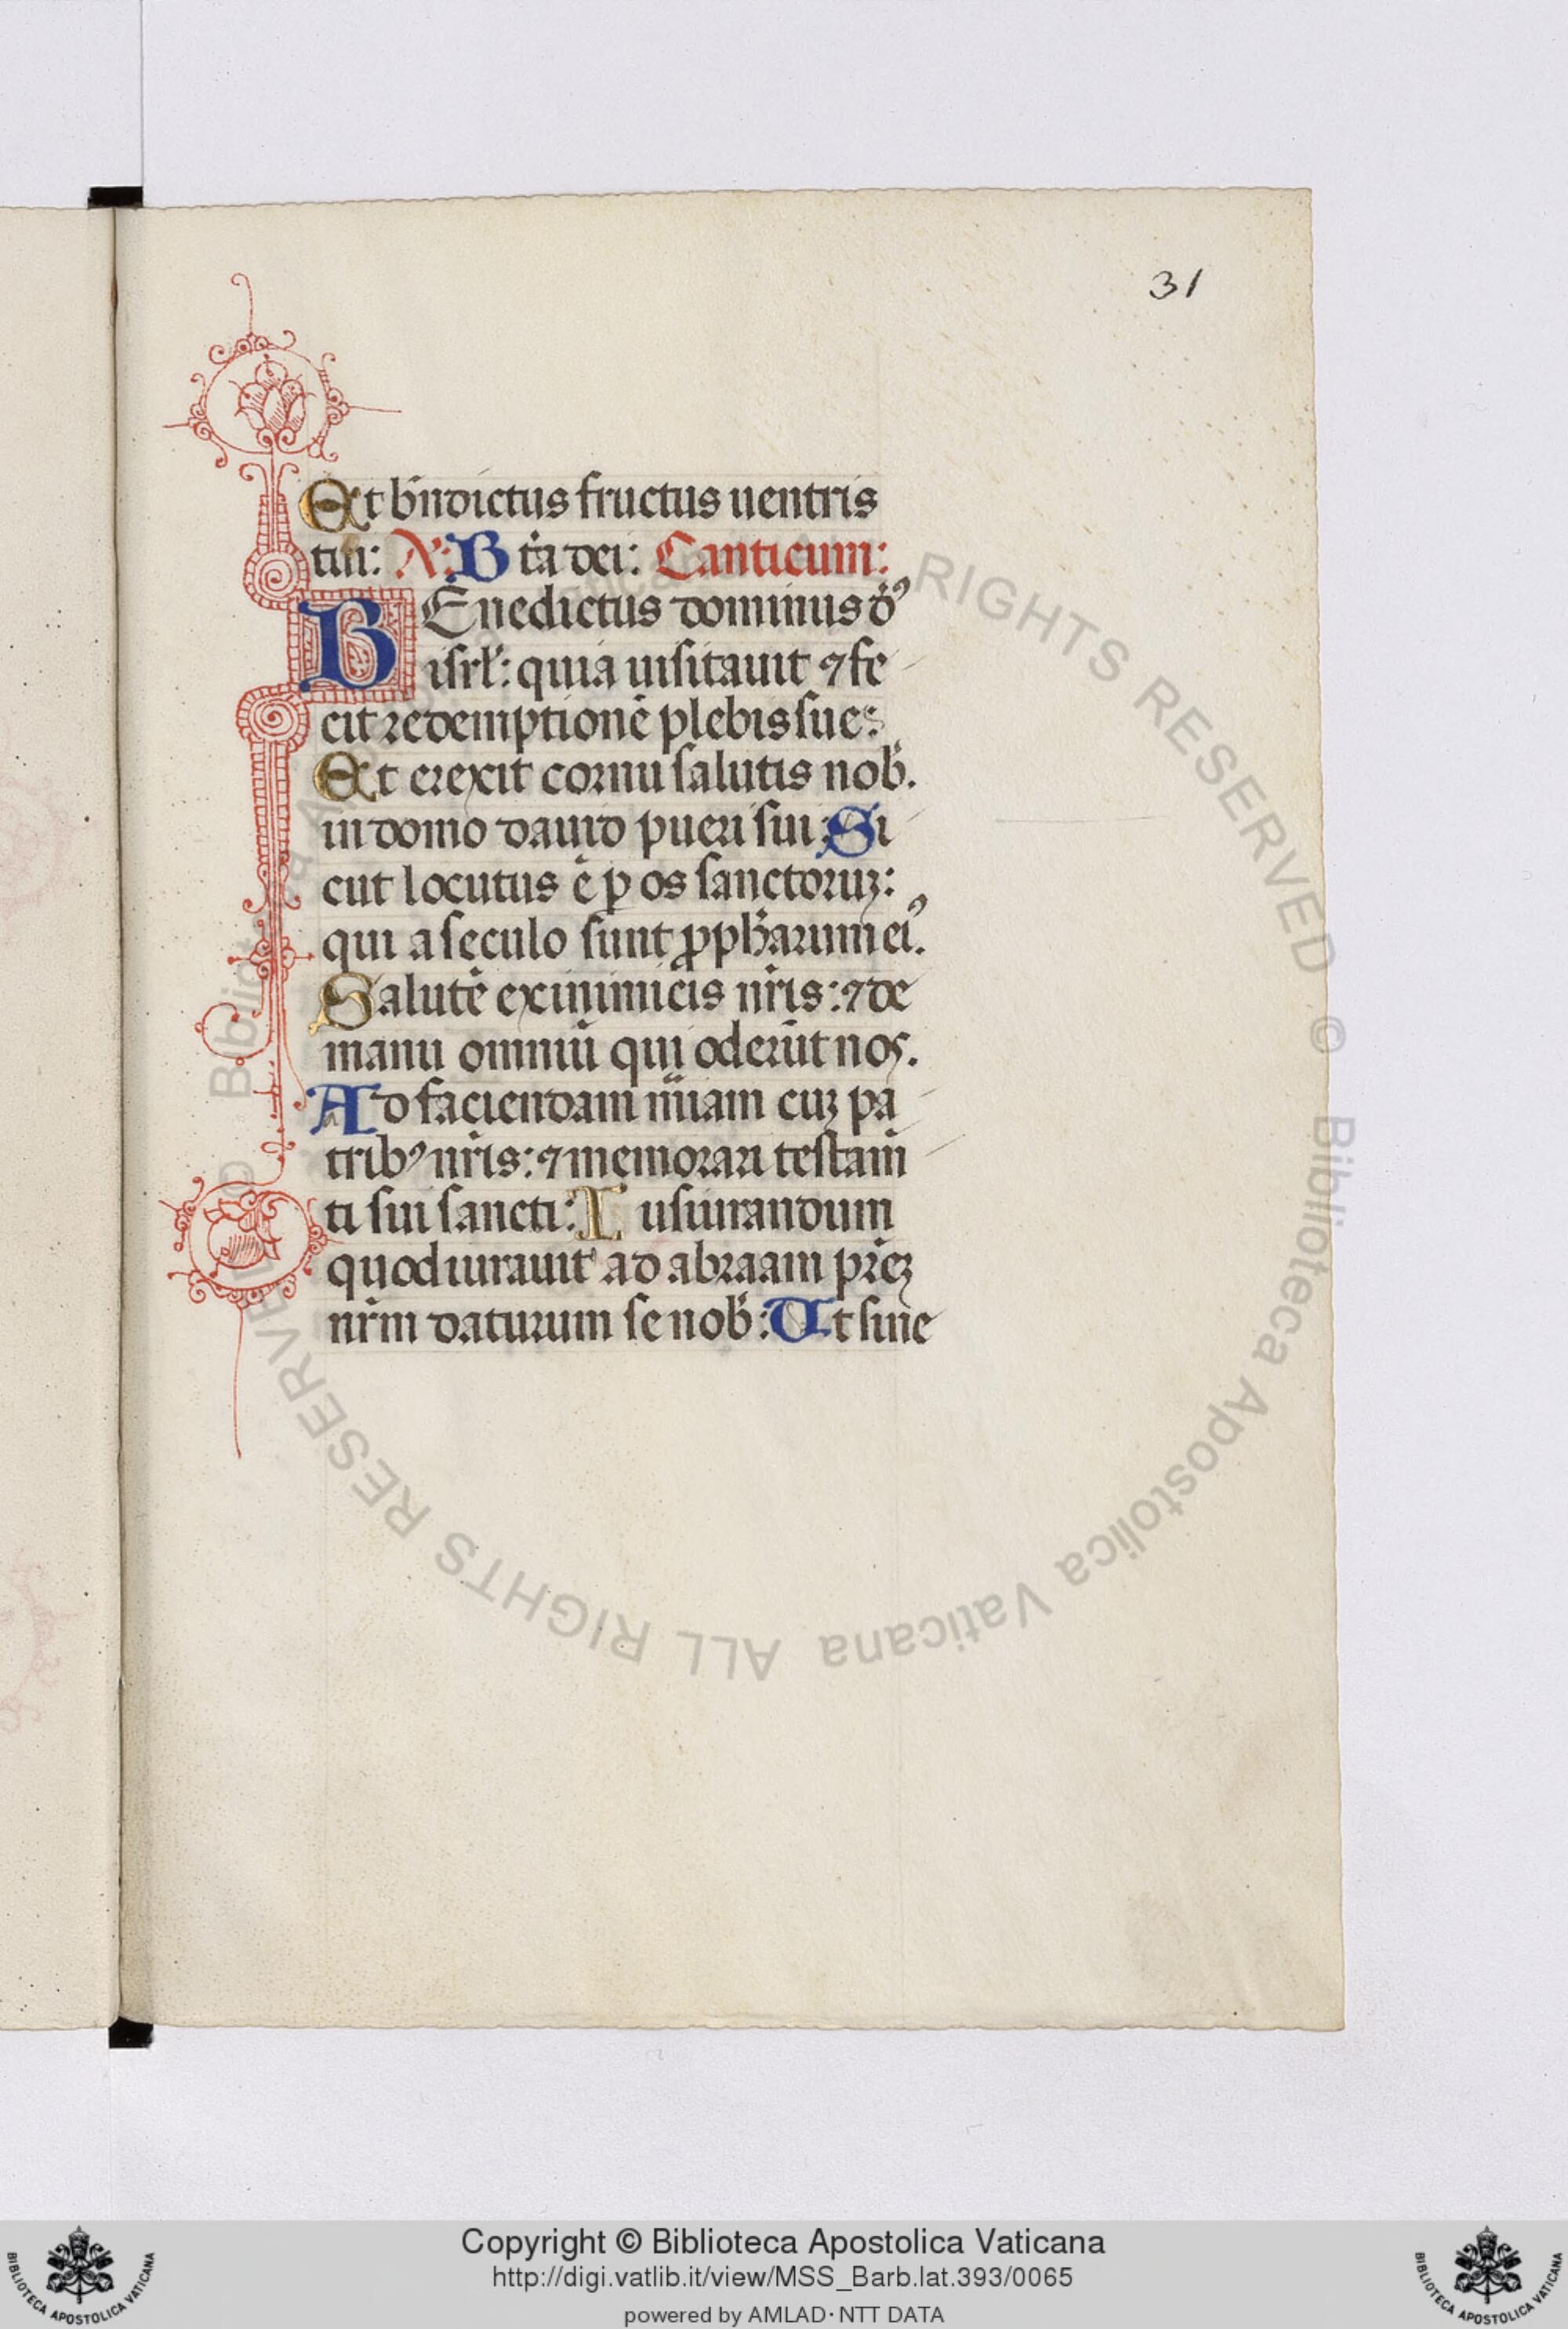 31
Et bn̄dictus fructus uentris
tui: A: B ta dei: Canticum:
BEnedictus dominus dꝰ
isrl': quia uisitauit ⁊ fe
cit redemptionē plebis sue:
Et erexit cornu salutis nob̄.
in domo dauid pueri sui: Si
cut locutus ē ꝑ os sanctoruꝫ:
qui a seculo sunt ꝓph̄arum eiꝰ.
Salutē ex inimicis nr̄is: ⁊ de
manu omniū qui oderūt nos.
Ad faciendam mīam cuꝫ pa
tribꝰ nr̄is: ⁊ memorari testam̄
ti sui sancti: Iusiurandum
quod iurauit ad abraam pr̄eꝫ
nr̄m daturum se nob̄: Ut sine
© Biblioteca Apostolica Vaticana ALL RIGHTS RESERVED
Copyright © Biblioteca Apostolica Vaticana
http://digi.vatlib.it/view/MSS_Barb.lat.393/0065
powered by AMLAD·NTT DATA
BIBLIOTECA APOSTOLICA VATICANA
BIBLIOTECA APOSTOLICA VATICANA